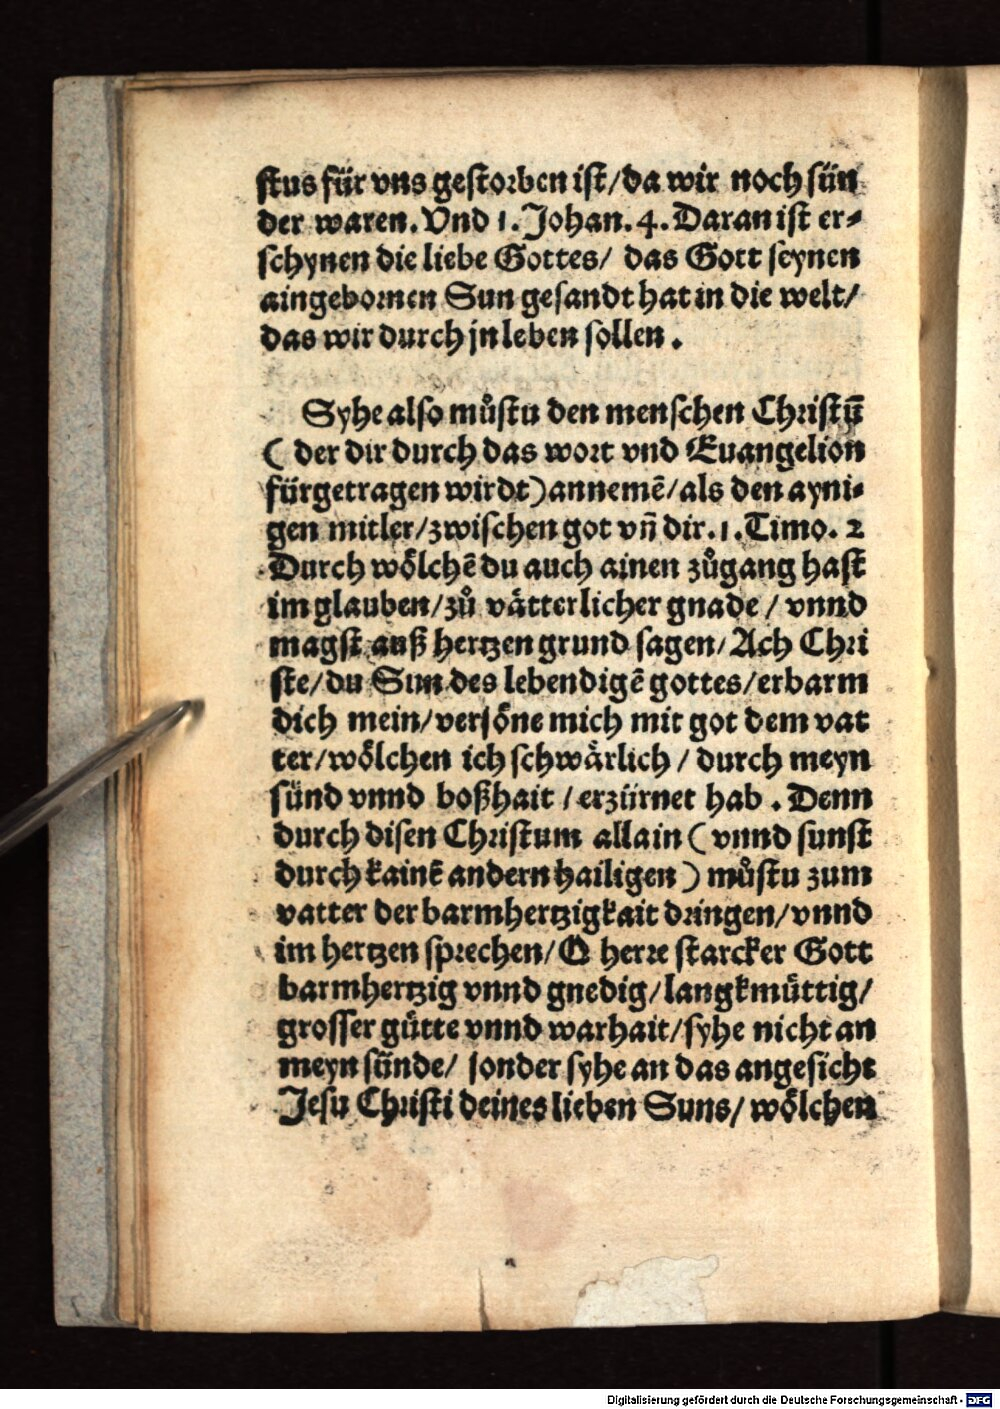 ſtus für vns geſtorben iſt/da wir noch ſün
der waren. Vnd 1. Johan. 4. Daran iſt er⸗
ſchynen die liebe Gottes/ das Gott ſeynen
aingebornen Sun geſandt hat in die welt/
das wir durch jn leben ſollen.
Syhe alſo můſtu den menſchen Chriſtū
( der dir durch das wort vnd Euangelion
fürgetragen wirdt) annemē/als den ayni⸗
gen mitler/zwiſchen got vñ dir. 1. Timo. 2
Durch woͤlchē du auch ainen zůgang haſt
im glauben/zů vaͤtterlicher gnade / vnnd
magſt auß hertzen grund ſagen/Ach Chri
ſte/du Sun des lebendigē gottes/erbarm
dich mein/verſoͤne mich mit got dem vat
ter/woͤlchen ich ſchwaͤrlich / durch meyn
ſünd vnnd boßhait / erzürnet hab. Denn
durch diſen Chriſtum allain ( vnnd ſunſt
durch kainē andern hailigen ) můſtu zum
vatter der barmhertzigkait dringen/vnnd
im hertzen ſprechen/O herre ſtarcker Gott
barmhertzig vnnd gnedig/langkmuͤttig/
groſſer guͤtte vnnd warhait/ſyhe nicht an
meyn ſünde/ ſonder ſyhe an das angeſicht
Jeſu Chriſti deines lieben Suns/ woͤlchen
Digitalisierung gefördert durch die Deutsche Forschungsgemeinschaft - DFG